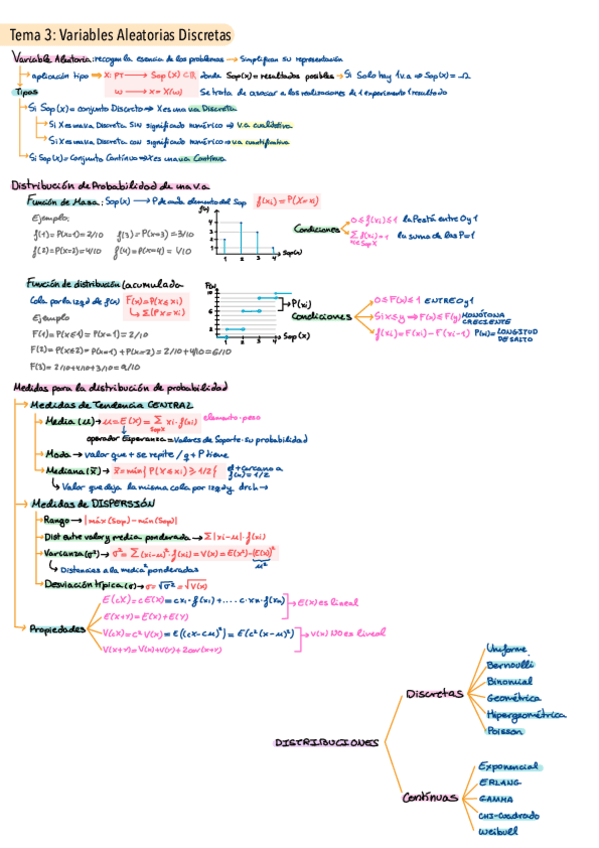 Tema 3: Variables Aleatorias Discretas
Variable Aleatoria: recogen la esencia de los problemas → Simplifican su representación
aplicación tipo → X: Ω → Sop(X) ⊂ ℝ donde Sop(X) = resultados posibles → Si Solo hay 1 v.a ⇒ Sop(X) = Ω
ω → x = X(ω) Se trata de asociar a las realizaciones de 1 experimento 1 resultado
Tipos
Si Sop(X) = conjunto Discreto ⇒ X es una v.a Discreta
Si X es una v.a. Discreta SIN significado numérico ⇒ v.a cualitativa
Si X es una v.a. Discreta con significado numérico ⇒ v.a cuantitativa
Si Sop(X) = Conjunto Contínuo ⇒ X es una v.a Contínua
Distribución de Probabilidad de una v.a
Función de Masa: Sop(x) → P de cada elemento del Sop f(xi) = P(X=xi)
Ejemplo:
f(1) = P(X=1) = 2/10 f(3) = P(X=3) = 3/10
f(2) = P(X=2) = 4/10 f(4) = P(X=4) = 1/10
f(x)
4
2
1
1 2 3 4
Sop(x)
Condiciones
0 ≤ f(xi) ≤ 1 la P está entre 0 y 1
Σ f(xi) = 1 la suma de las P = 1
Función de distribución (acumulada
Cola por la izqd de f(x) F(x) = P(X ≤ xi)
↳ Σ(P X = xi)
Ejemplo
F(1) = P(X≤1) = P(X=1) = 2/10
F(2) = P(X≤2) = P(X=1) + P(X=2) = 2/10 + 4/10 = 6/10
F(3) = 2/10 + 4/10 + 3/10 = 9/10
F(x)
10
6
2
1 2 3 4
Sop(x)
P(xi)
Condiciones
0 ≤ F(x) ≤ 1 ENTRE 0 y 1
Si x ≤ y ⇒ F(x) ≤ F(y) MONÓTONA CRECIENTE
f(xi) = F(xi) - F(xi-1) P(xi) = LONGITUD DE SALTO
Medidas para la distribución de probabilidad
Medidas de Tendencia CENTRAL
Media (μ) → μ = E(X) = Σ xi · f(xi) elemento · peso
Sop X
operador Esperanza = Valores de Soporte · su probabilidad
Moda → valor que + se repite / q + P tiene
Mediana (x̃) → x̃ = min{ P(X ≤ xi) ≥ 1/2 } el + cercano a F(x) = 1/2
↳ Valor que deja la misma cola por izqd y drch →
Medidas de DISPERSIÓN
Rango → |máx(Sop) - min(Sop)|
Dist entre valor y media ponderada → Σ |xi - μ| · f(xi)
Varianza (σ²) → σ² = Σ (xi - μ)² · f(xi) = V(X) = E(X²) - (E(X))²
μ²
↳ Distancias a la media² ponderadas
Desviación típica (σ) → σ = √σ² = √V(X)
Propiedades
E(cX) = c E(X) = c x₁ · f(x₁) + .... c · xn · f(xn)
E(X+Y) = E(X) + E(Y)
E(X) es lineal
V(cX) = c² V(X) = E((cX - cμ)²) = E(c²(X - μ)²)
V(X+Y) = V(X) + V(Y) + 2cov(X+Y)
V(X) NO es lineal
DISTRIBUCIONES
Discretas
Uniforme
Bernoulli
Binomial
Geométrica
Hipergeométrica
Poisson
Contínuas
Exponencial
ERLANG
GAMMA
CHI-Cuadrado
Weibull